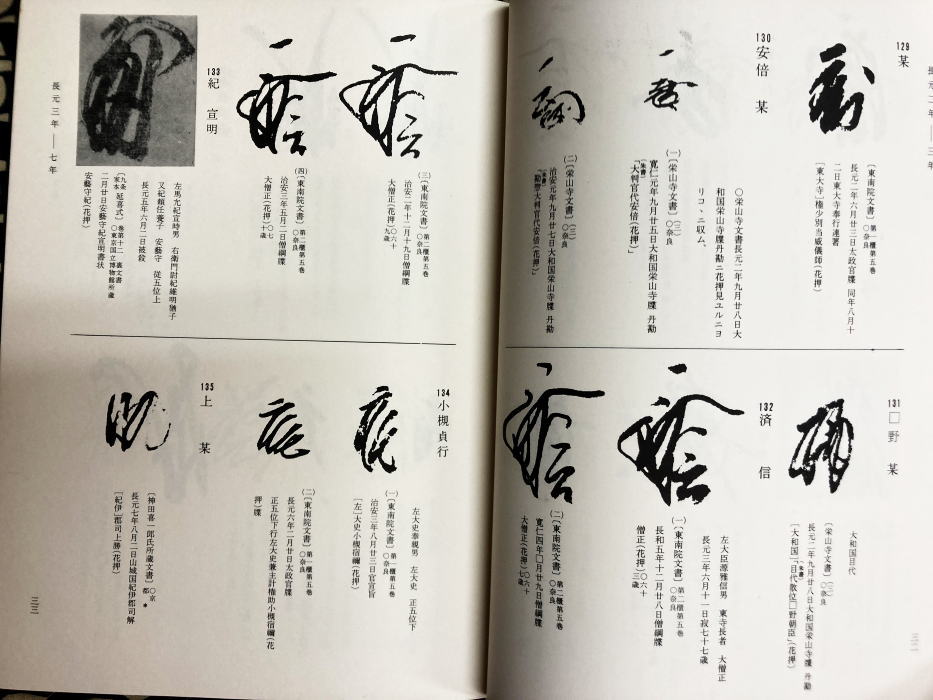 長元二年——三年
129 某
〔東南院文書〕第一櫃第五巻○奈良
長元二年六月廿三日太政官牒 同年八月十
二日東大寺奉行連署
「〔東大寺〕権少別当威儀師(花押)
130 安倍 某
○栄山寺文書長元二年九月廿八日大
和国栄山寺牒丹勘ニ花押見ユルニヨ
リコヽニ収ム、
(一)〔栄山寺文書〕(三)○奈良
寛仁元年九月廿五日大和国栄山寺牒 丹勘
(朱書)「大判官代安倍(花押)」
(二)〔栄山寺文書〕(三)○奈良
治安元年九月廿七日大和国栄山寺牒 丹勘
(朱書)「勘禦大判官代安倍(花押)」
131 □野 某
大和国目代
〔栄山寺文書〕(三)○奈良
長元二年九月廿八日大和国栄山寺牒 丹勘
〔大和国〕(朱書)「目代散位□野朝臣」(花押)
132 済 信
左大臣源雅信男 東寺長者 大僧正
長元三年六月十一日寂七十七歳
(一)〔東南院文書〕第二櫃第五巻○奈良
長和五年十二月廿八日僧綱牒
僧正(花押)○六十三歳
(二)〔東南院文書〕第二櫃第五巻○奈良
寛仁四年□月廿九日僧綱牒
大僧正(花押)○六十七歳
(三)〔東南院文書〕第二櫃第五巻○奈良
治安二年十二月十九日僧綱牒
大僧正(花押)○六十九歳
(四)〔東南院文書〕第二櫃第五巻○奈良
治安三年五月二日僧綱牒
大僧正(花押)○七十歳
133 紀 宣明
左馬允紀宣時男 右衛門尉紀維明猶子
又紀頼任養子 安藝守 従五位上
長元五年六月二日被殺
〔九条家本延喜式〕巻第十二裏文書○東京国立博物館所蔵
二月廿日安藝守紀宣明書状
安藝守紀(花押)
長元三年——七年
134 小槻貞行
左大史奉親男 左大史 正五位下
(一)〔東南院文書〕第一櫃第五巻○奈良
治安三年八月廿三日官宣旨
「〔左〕大史小槻宿禰(花押)
(二)〔東南院文書〕第一櫃第五巻○奈良
長元六年二月廿日太政官牒
正五位下行左大史兼主計権助小槻宿禰(花
押)牒
135 上 某
〔神田喜一郎氏所蔵文書〕○京都*
長元七年八月二日山城国紀伊郡司解
「〔紀伊〕郡司上勝(花押)
三三